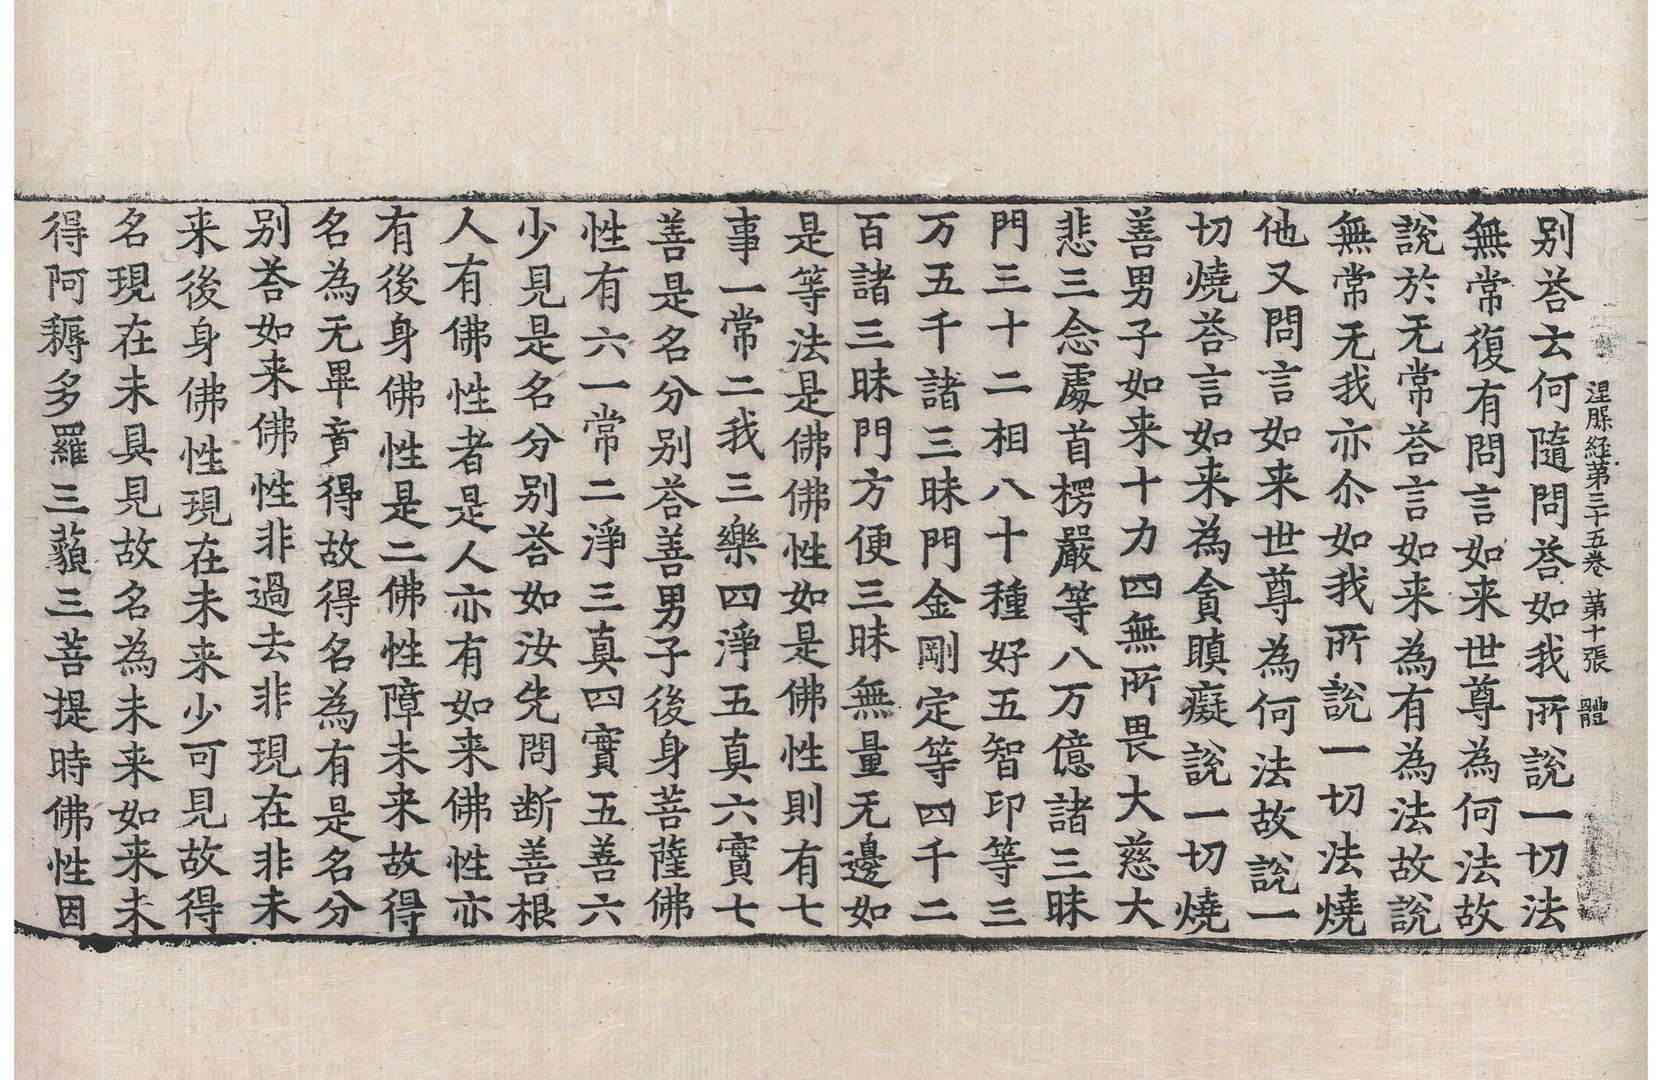 涅槃經第三十五卷 第十張 體
别荅云何隨問荅如我所說一切法
無常復有問言如来世尊為何法故
說於无常荅言如来為有為法故說
無常无我亦尒如我所說一切法燒
他又問言如来世尊為何法故說一
切燒荅言如来為貪瞋癡說一切燒
善男子如来十力四無所畏大慈大
悲三念處首楞嚴等八万億諸三昧
門三十二相八十種好五智印等三
万五千諸三昧門金剛定等四千二
百諸三昧門方便三昧無量无邊如
是等法是佛佛性如是佛性則有七
事一常二我三樂四淨五真六實七
善是名分别荅善男子後身菩薩佛
性有六一常二淨三真四實五善六
少見是名分别荅如汝先問断善根
人有佛性者是人亦有如来佛性亦
有後身佛性是二佛性障未来故得
名為无畢竟得故得名為有是名分
别荅如来佛性非過去非現在非未
来後身佛性現在未来少可見故得
名現在未具見故名為未来如来未
得阿耨多羅三藐三菩提時佛性因